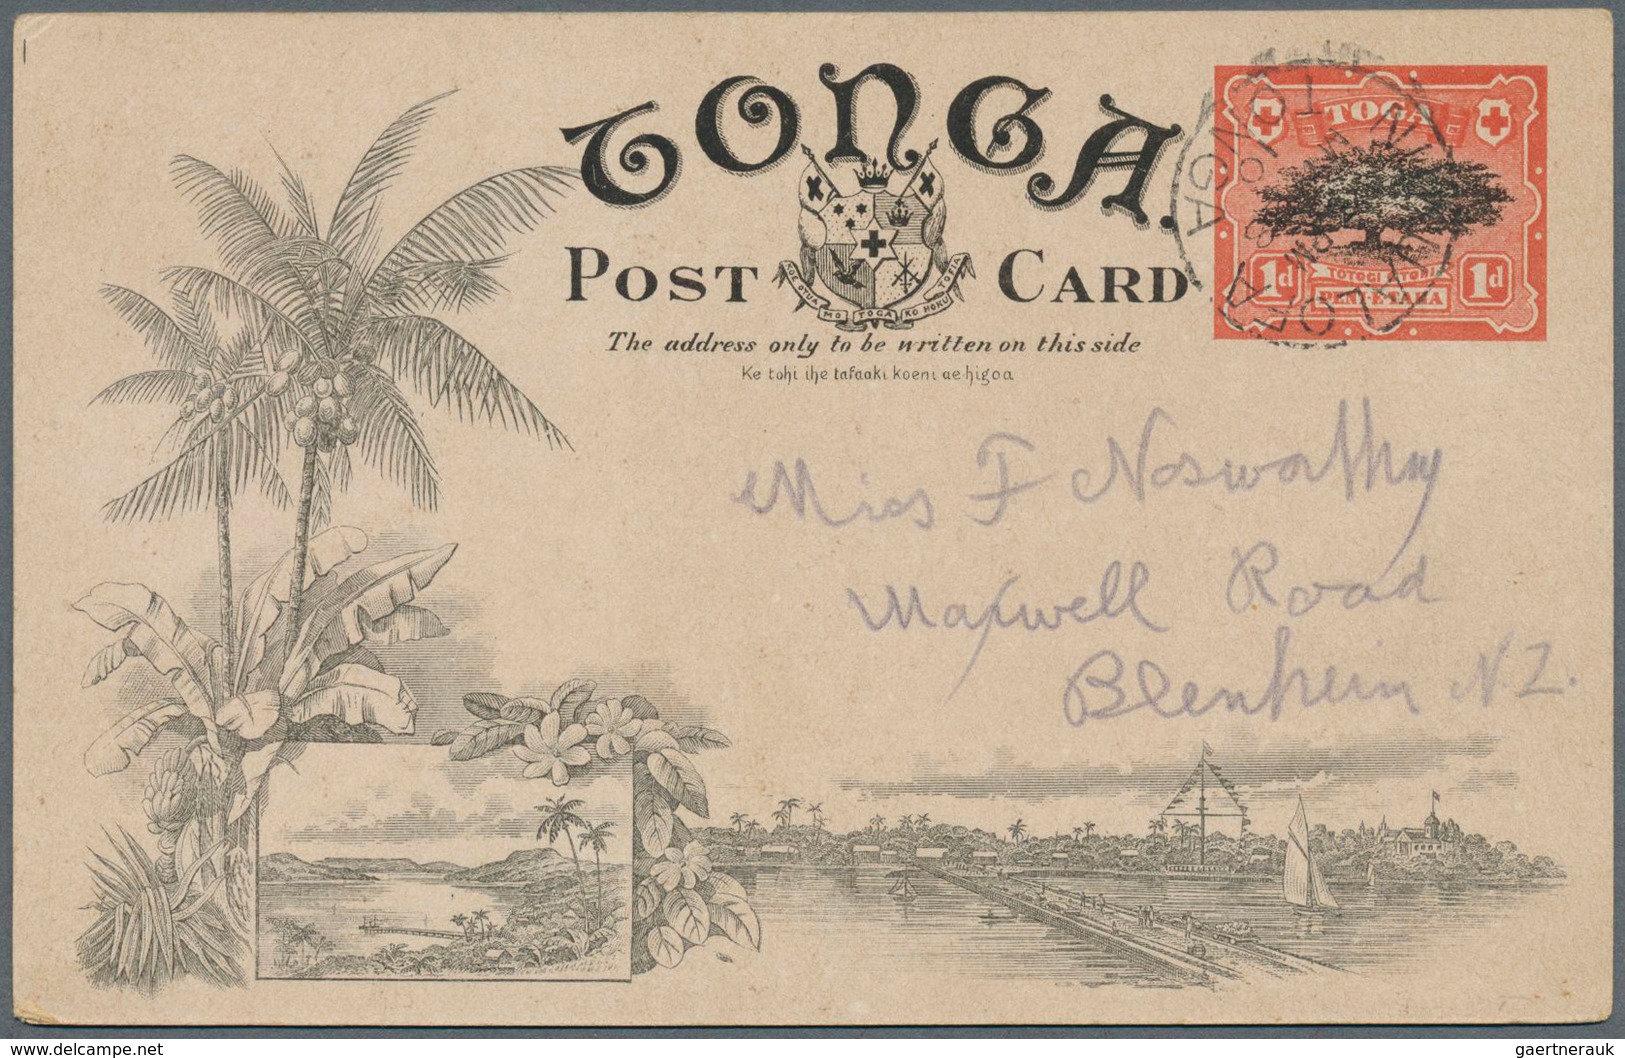 TONGA.
POST CARD
KOE OTUA MO TOGA KO HOKU TOFIA
The address only to be written on this side
Ke tohi ihe tafaaki koeni ae higoa
TOGA
1d TOTOGI I TOHI 1d
PENI E TAHA
NUKUALOFA
TONGA
Miss F Nosworthy
Maxwell Road
Blenheim N.Z.
delcampe.net
gaertnerauk